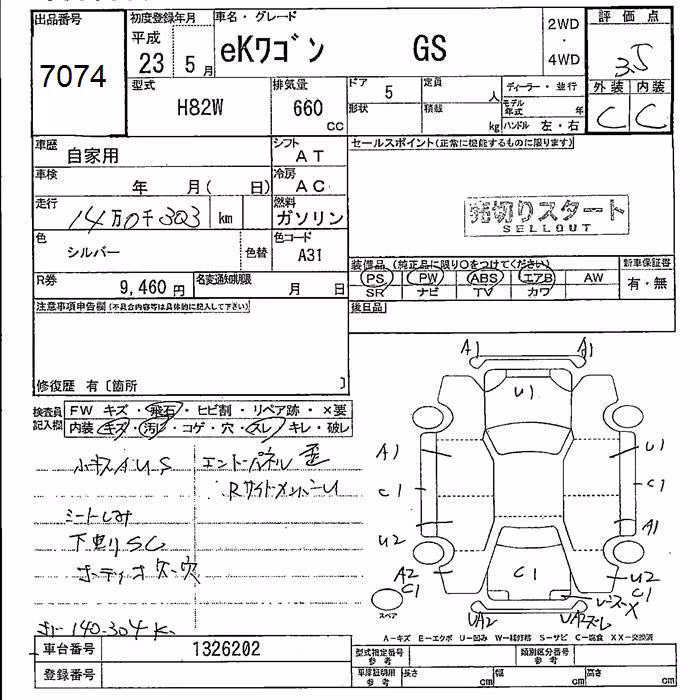 出品番号
7074
初度登録年月
平成
23 5月
車名・グレード
eKワゴン GS
2WD
・
4WD
評価点
3.5
外装 内装
C C
型式
H82W
排気量
660
cc
ドア 5
定員 人
ディーラー・並行
形状
積載 kg
モデル年式 年
ハンドル 左・右
車歴
自家用
シフト
AT
セールスポイント(正常に機能するものに限ります)
車検
年 月( 日)
冷房
AC
走行
14万0千303 km
燃料
ガソリン
売切りスタート
SELLOUT
色
シルバー
色替
色コード
A31
装備品 (純正品に限り○をつけてください)
新車保証書
PS PW ABS エアB AW
SR ナビ TV カワ
有・無
R券
9,460円
名変通知期限
月 日
後日品
注意事項申告欄(不具合内容等は具体的に記入して下さい)
修復歴 有〔箇所 〕
検査員
記入欄
FW キズ・飛石・ヒビ割・リペア跡・×要
内装・キズ・汚レ・コゲ・穴・スレ・キレ・破レ
小キズAUS
エンドパネル歪
RサイドメンバーU
シートしみ
下廻りSC
オーディオ欠・穴
140.304K
A1 A1
U1
A1 U1
C1 C1
U2 A1
A2 U2
C1 C1
C1
UA2 UA2ズレ
スペア
A-キズ E-エクボ U-凹み W-補修跡 S-サビ C-腐食 XX-交換済
車台番号
1326202
登録番号
型式指定番号
参考
類別区分番号
参考
車庫証明用
参考
長さ cm
幅 cm
高さ cm